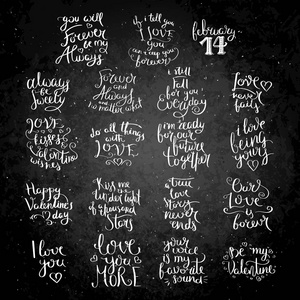 you will
Forever
be my
Always
if i tell you
I LOVE
you
can i keep you
forever?
february
14
always
be
sweety
Forever
and
Always
and
no matter what
I still
Fall
for you
Everyday
Love
never
fails
LOVE
kisses
&
Valentine
wishes
do all things
with
LOVE
i'm ready
for a
future
together
I love
being
yours
Happy
Valentine's
day
Kiss me
under light
of a thousand
stars
a true
love
story
never
ends
Our
Love
is
forever
I love
you
LOVE
you
MORE
your
voice is
my
favorite
sound
Be my
Valentine